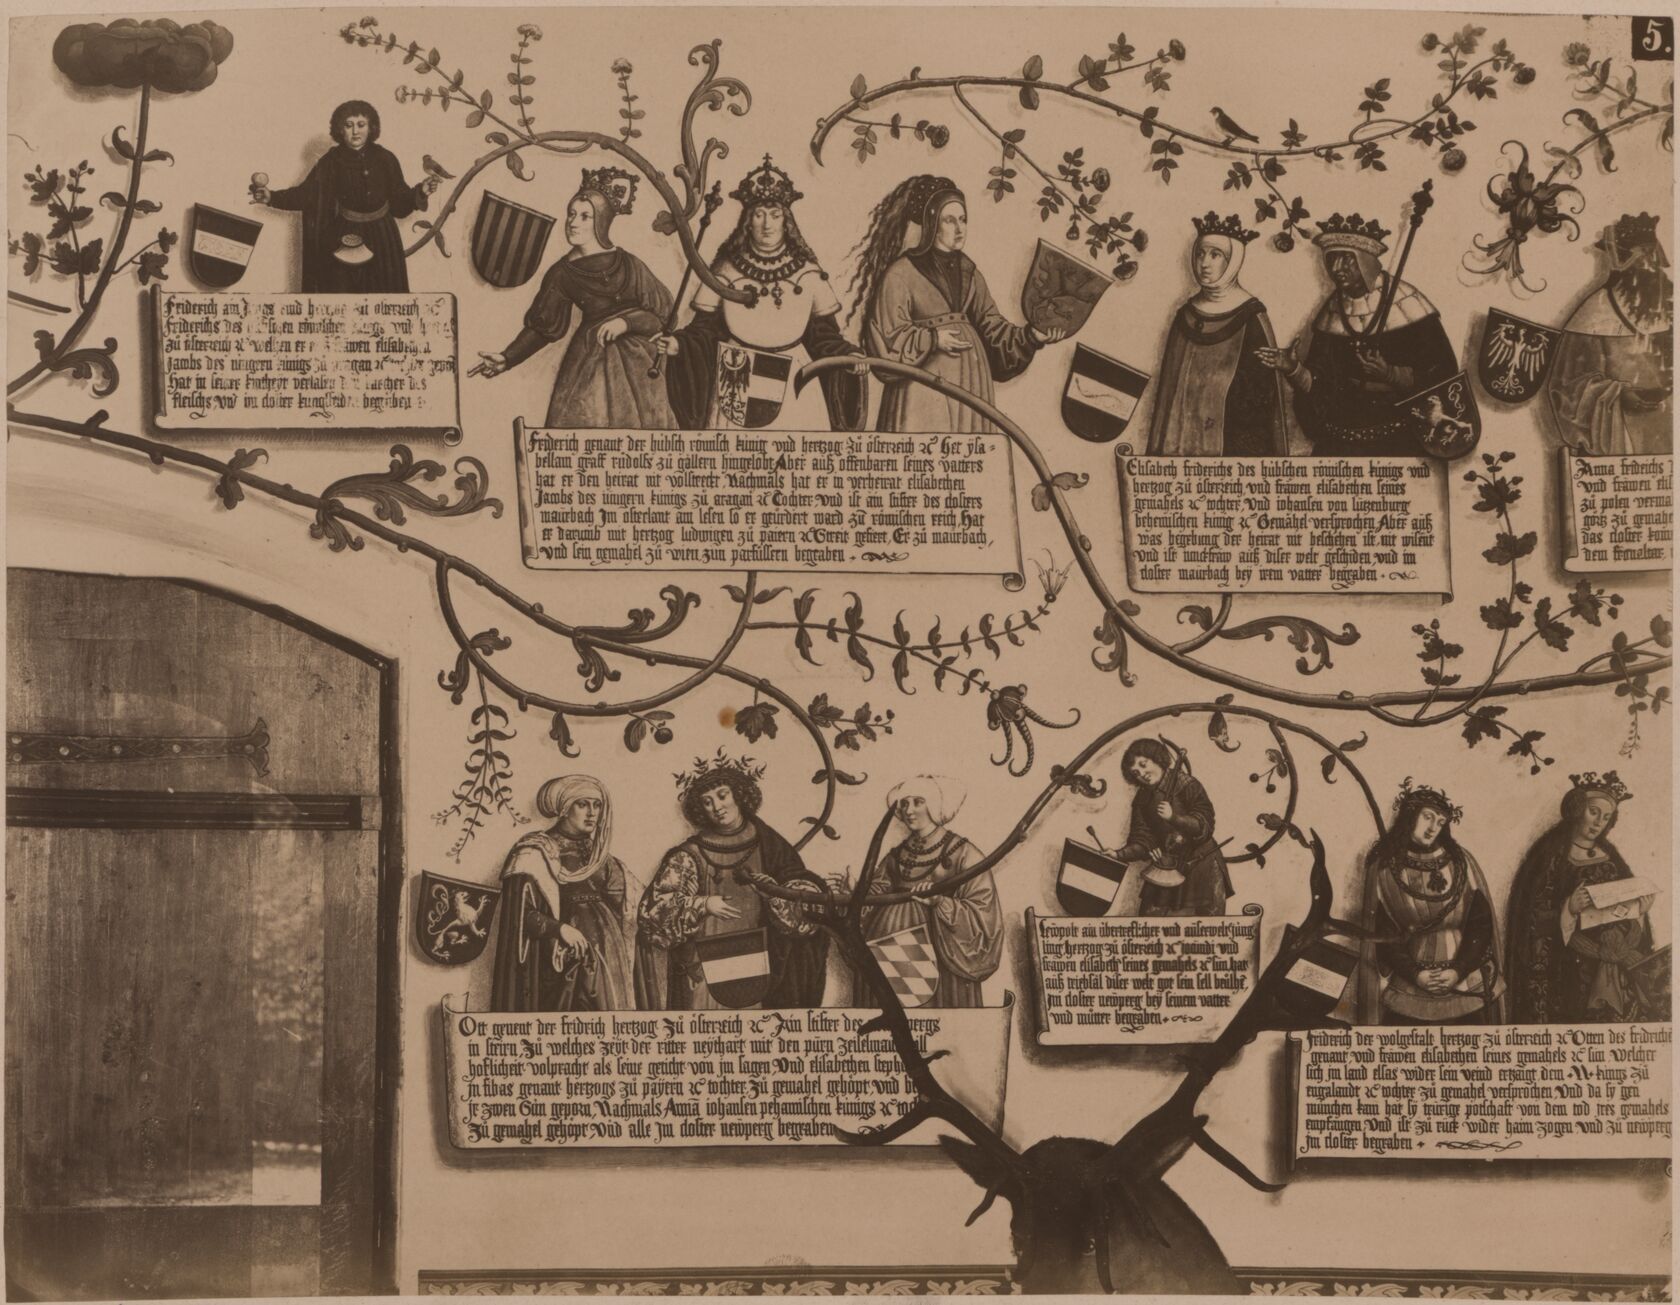 5.
Friderich ain Jungs kind hertzog zu osterreich ꝛc
Friderichs des hubschen römischen kunigs vnd hertzog
zu österreich ꝛc welhen er frawen elisabeth
Jacobs des jungern kunigs zu aragan ꝛc
Hat in seiner kinthept verlassen den kercher des
fleischs vnd im closter kungsfeld begraben
Friderich genant der hübsch römisch künig vnd hertzog zü österreich ꝛc Het ysa-
bellam graff rüdolfs zü gällern hingelobt Aber auß offenbaren seines vatters
hat er den heirat nit volstreckt Nachmals hat er in verheirat elisabethen
Jacobs des jüngern künigs zü aragan ꝛc Tochter, vnd ist ain stifter des closters
maürbach Im osterlant am lesen so er geürdert ward zü römischen reich, Hat
er darumb mit hertzog ludwigen zü paiern ꝛc Streit gefiert, Er zü maürbach,
vnd sein gemahel zü wien zun parfüssern begraben
Elisabeth friderichs des hübschen römischen künigs vnd
hertzog zü österreich vnd frawen elisabethen seines
gemahels ꝛc tochter, Vnd iohansen von lützenburg
behemischen künig ꝛc Gemahel versprochen Aber auß
was begebung der heirat nit beschehen ist, nit wisent
vnd ist iunckfraw auß diser welt geschiden, vnd im
closter maürbach bey irem vatter begraben
Anna frideichs
vnd frawen elis
zü polen verma
görtz zü gemahe
das closter
dem
Ott genent der fridrich hertzog zü österreich ꝛc Ain stifter des newpergs
in steirn, Zü welches zeyt der ritter neythart mit den pürn zeilelmaur vill
hoflicheit volpracht als seine geticht von im sagen Vnd elisabethen steph
In fibas genant hertzogs zü payern ꝛc tochter, zü gemahel gehöpt, vnd be
je zwen Sün geporn, Nachmals Annā iohansen pehamischen künigs ꝛc toch
Zü gemahel gehöpt vnd alle jm closter newperg begraben
Lewpolt ain übertreflicher vnd außerwelt jüng
ling hertzog zü österreich ꝛc vnd
frawen elisabeth seines gemahels ꝛc sün, hat
auß triebsal diser welt got sein sell
jm closter newperg bey seinem vatter
vnd müter begraben
Friderich der wolgestalt hertzog zü österreich ꝛc Otten des fridrichs
genant vnd frawen elisabethen seines gemahels ꝛc sün welcher
sich jm land elsas wider sein veind ertzaigt dem N künigs zü
engalandt ꝛc tochter zü gemahel versprochen Vnd da sy gen
münchen kam hat sy trürige potschaft von dem tod jres gemahels
empfangen Vnd ist zü rück wider haim zogen vnd zü newperg
jm closter begraben